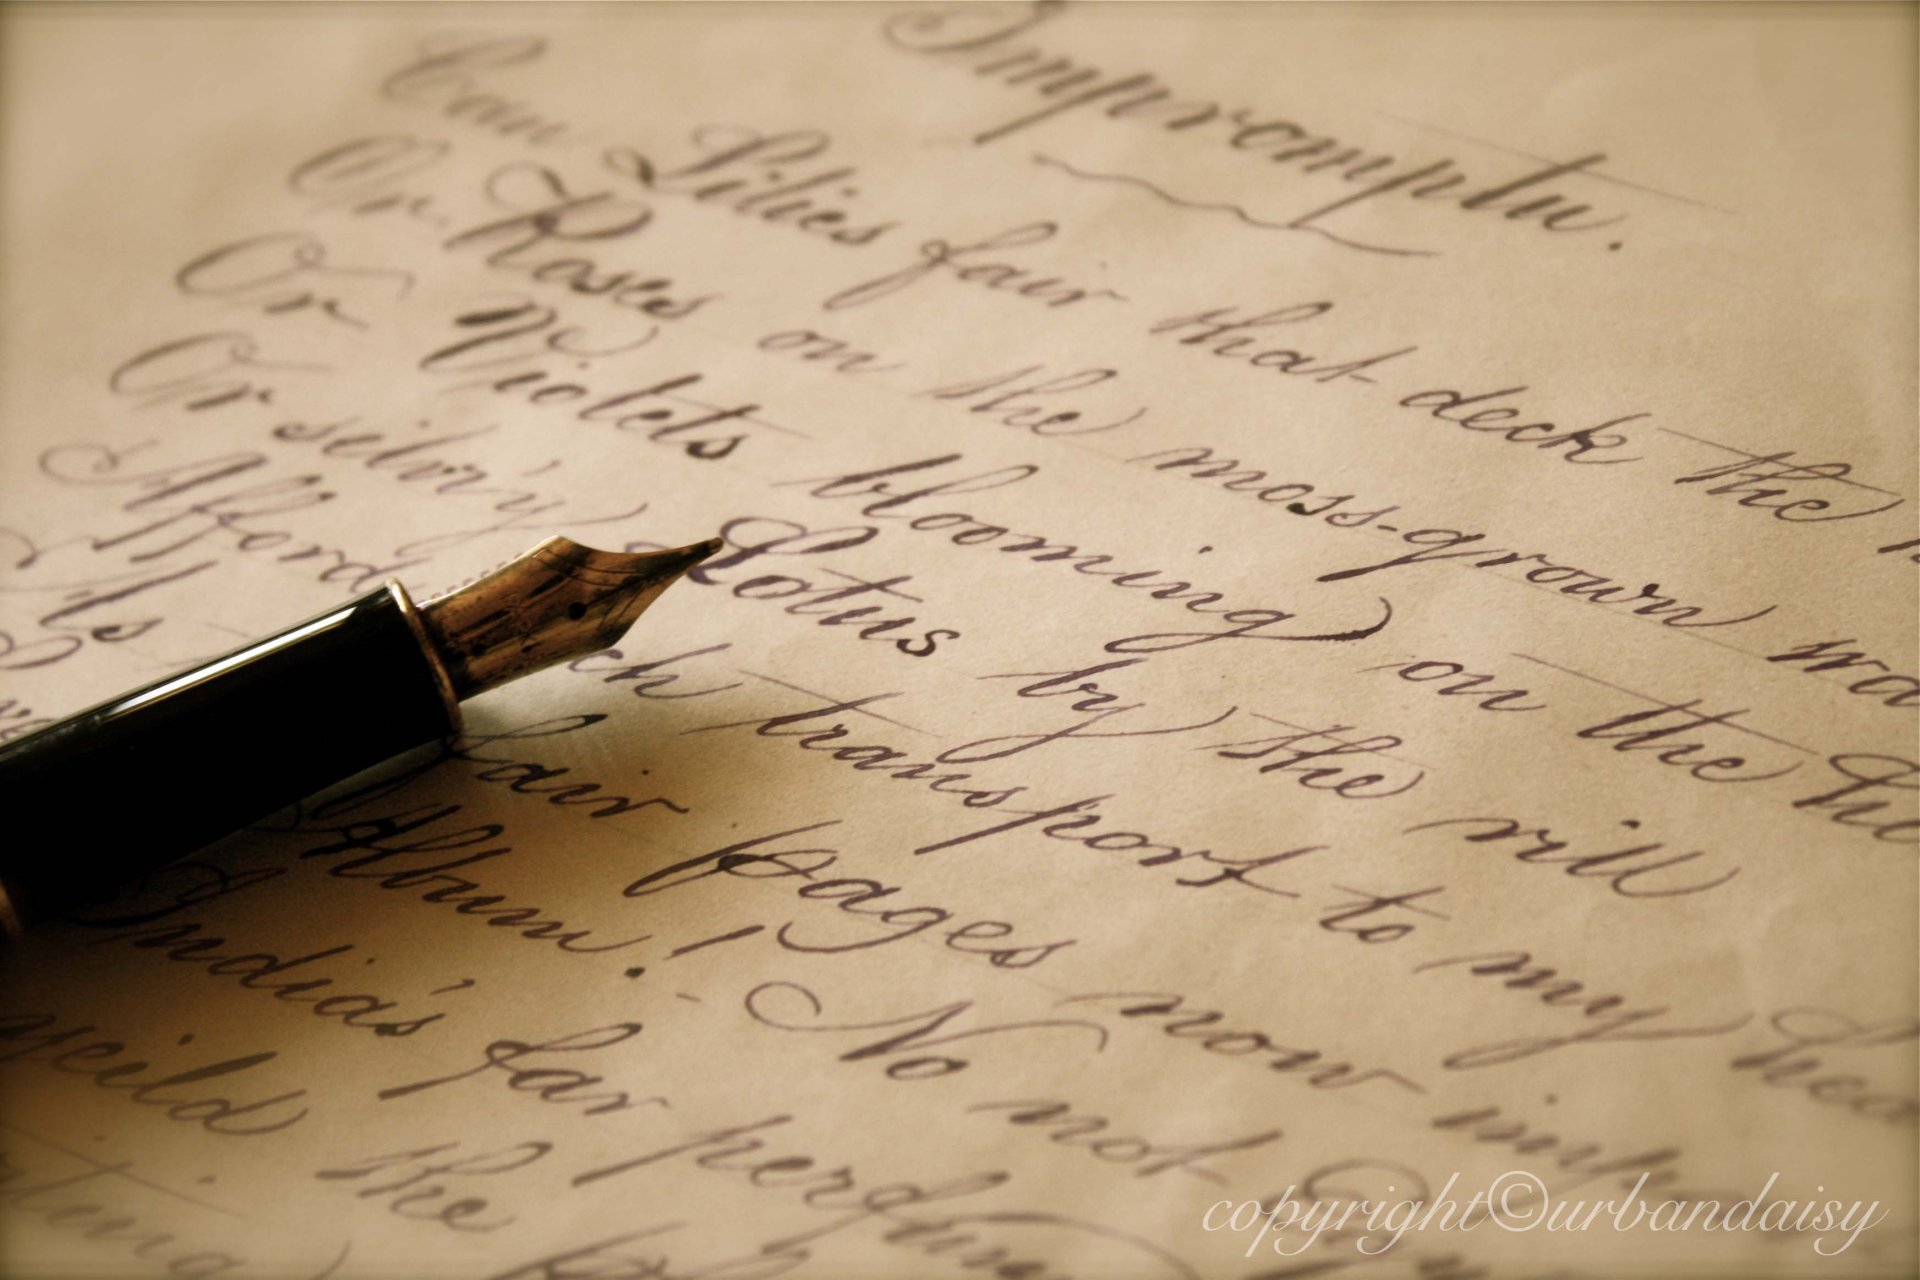 Impromptu.
Can Lilies fair that deck the
Or Roses on the moss-grown
Or Violets blooming on the
Or silv'ry Lotus by the rill
Afford such transport to my
As fair pages now
Album! No not
India's far
yeild the
copyright©urbandaisy